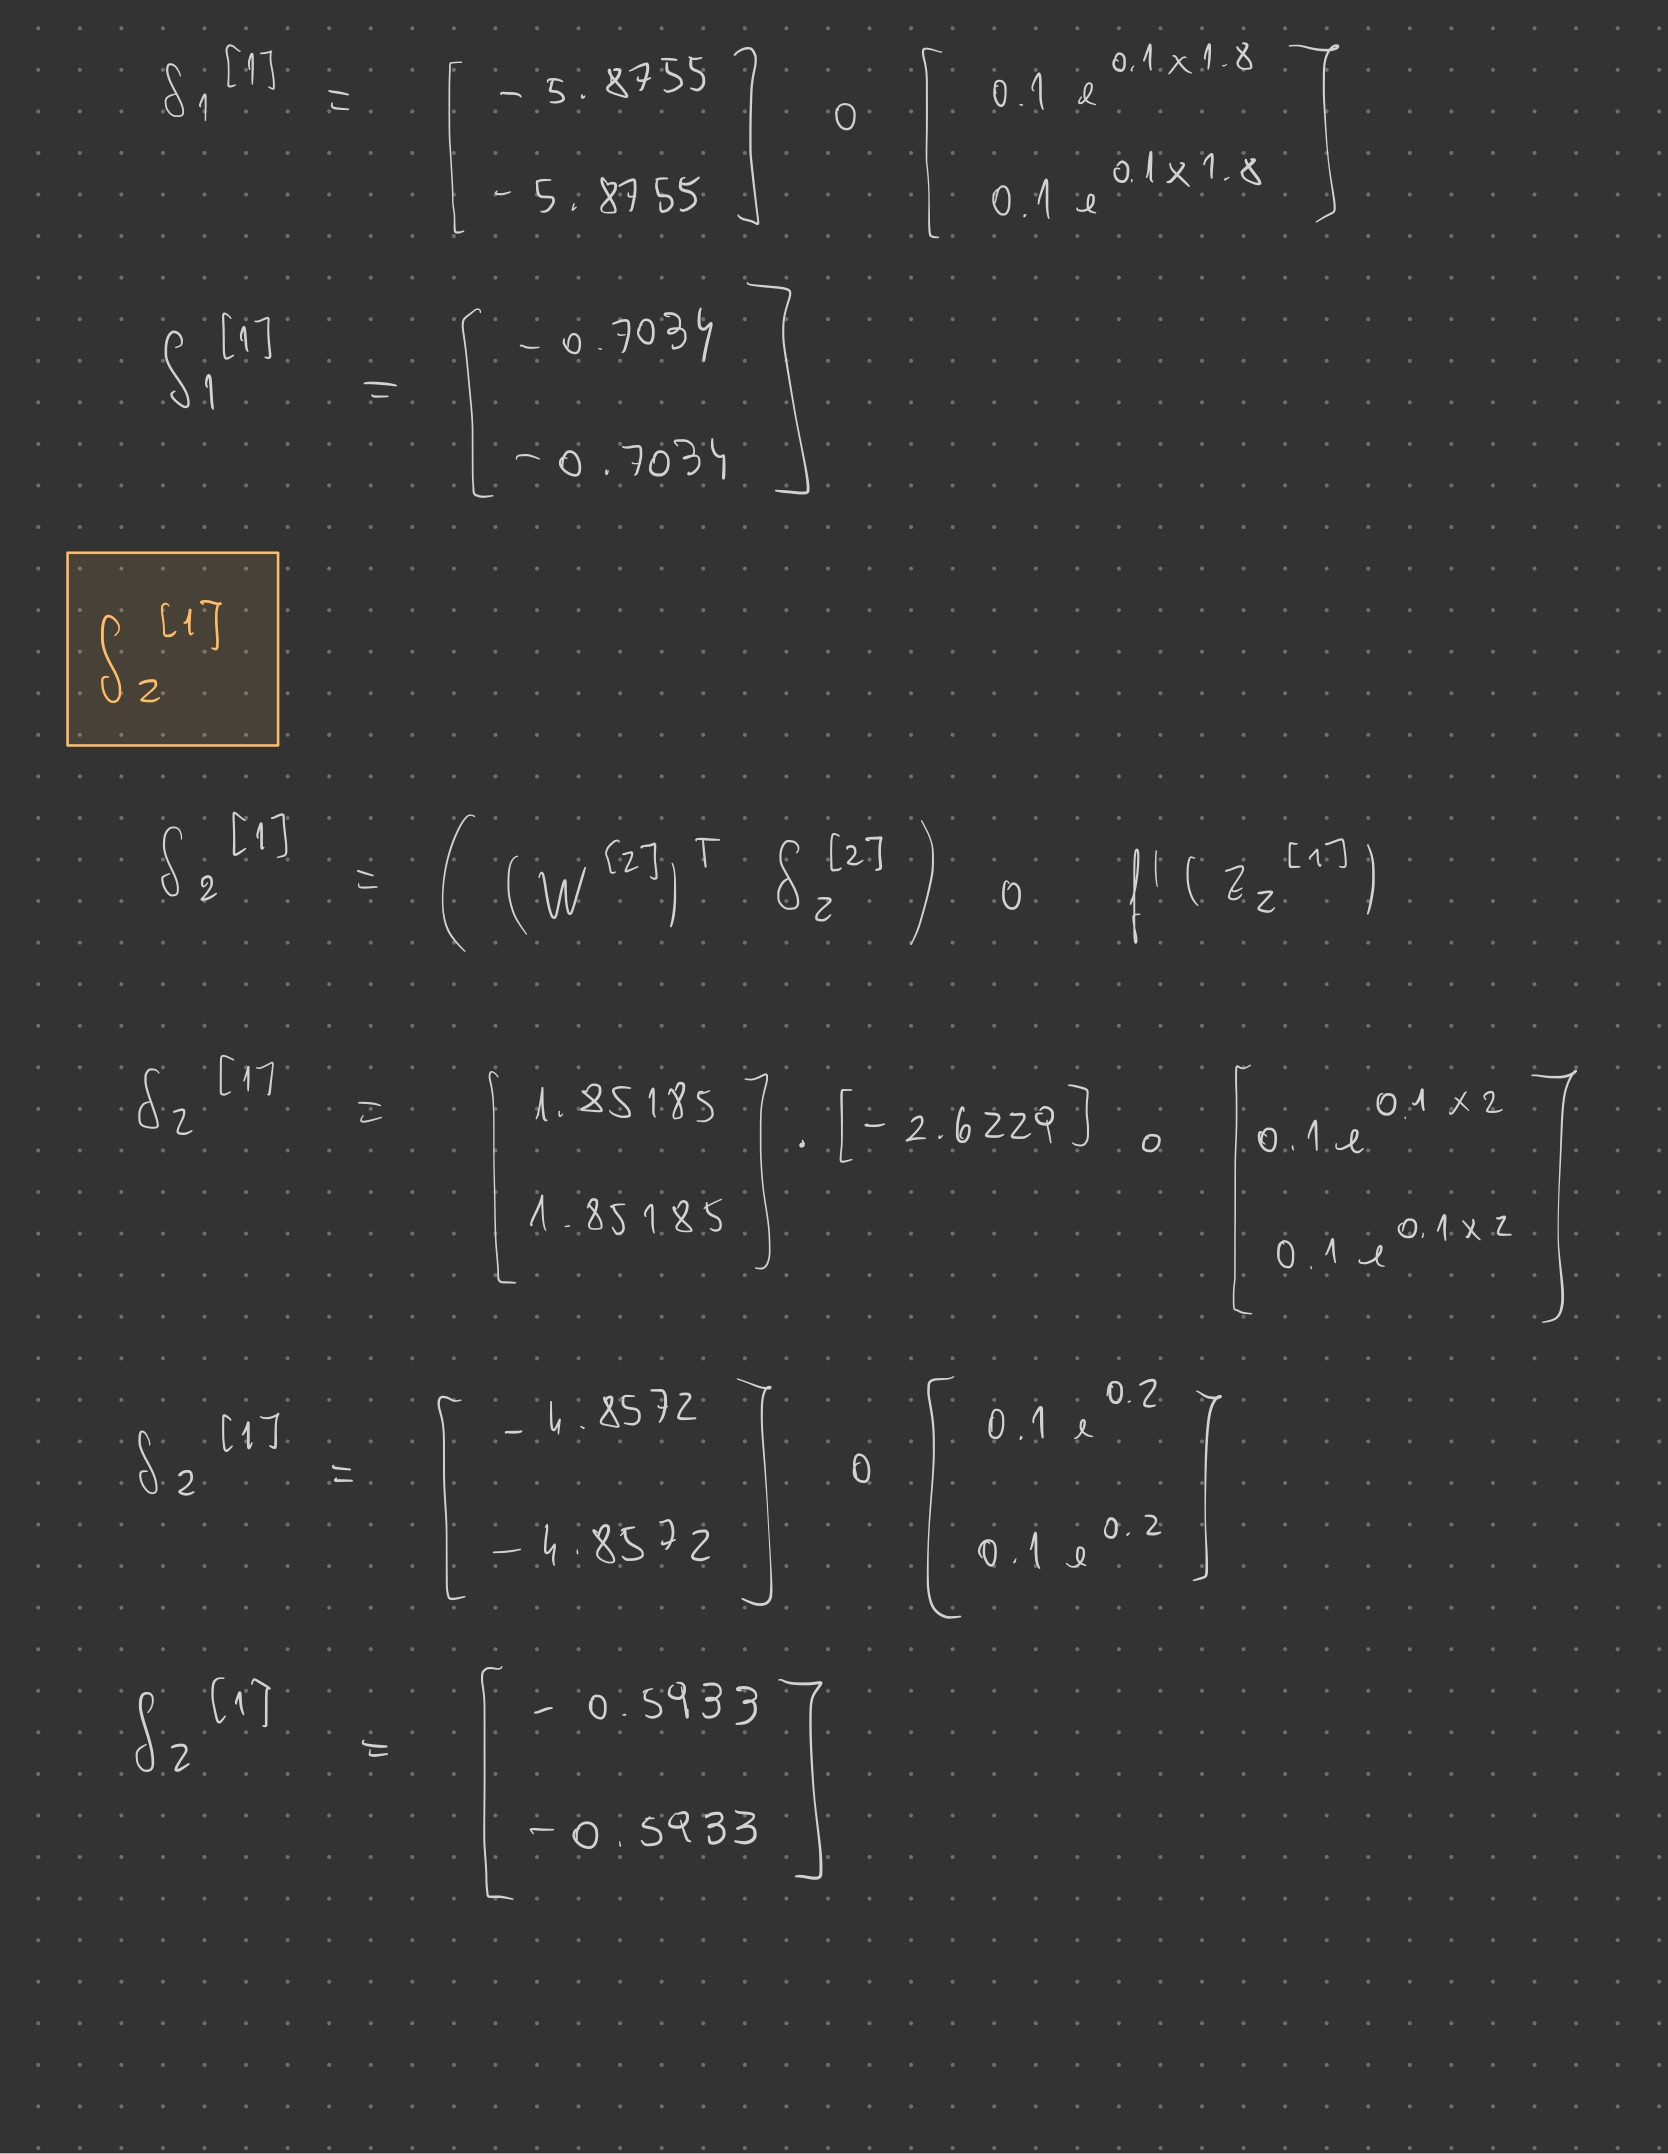 δ₁^[1] = [ -5.8755 ; -5.8755 ] ∘ [ 0.1 e^{0.1×1.8} ; 0.1 e^{0.1×1.8} ]
δ₁^[1] = [ -0.7034 ; -0.7034 ]
δ₂^[1]
δ₂^[1] = ( (W^[2])^T δ₂^[2] ) ∘ f'(z₂^[1])
δ₂^[1] = [ 1.85185 ; 1.85185 ] · [ -2.6229 ] ∘ [ 0.1 e^{0.1×2} ; 0.1 e^{0.1×2} ]
δ₂^[1] = [ -4.8572 ; -4.8572 ] ∘ [ 0.1 e^{0.2} ; 0.1 e^{0.2} ]
δ₂^[1] = [ -0.5933 ; -0.5933 ]